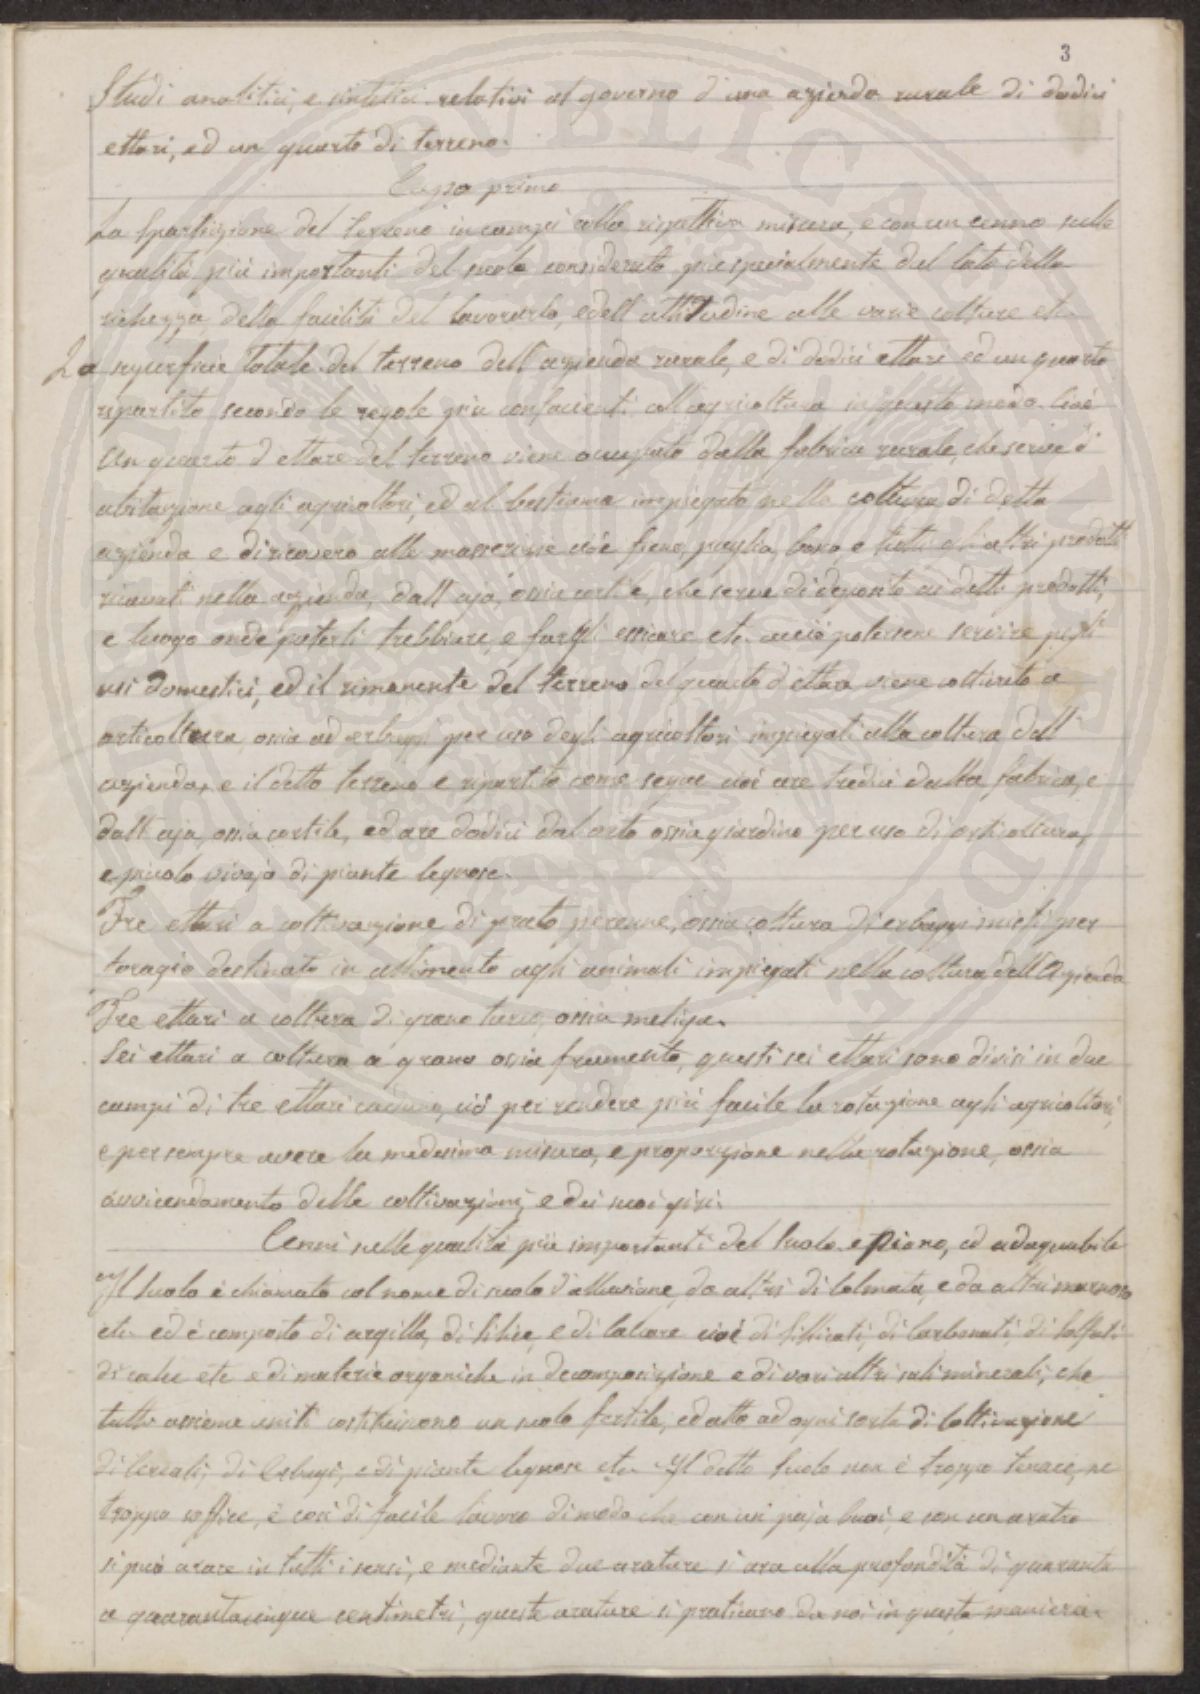 3
Studi analitici, e sintetici relativi al governo d'una azienda rurale di dodici
ettari, ed un quarto di terreno.
Capo primo
La spartizione del terreno in campi colla rispettiva misura, e con un cenno sulle
qualità più importanti del suolo considerato più specialmente dal lato della
richezza della facilità del lavorarlo, e dell'attitudine alle varie colture etc.
La superficie totale del terreno dell'azienda rurale, e di dodici ettari ed un quarto
ripartito secondo le regole più confacienti all'agricoltura in questo modo. Cioè
Un quarto d'ettare del terreno viene occupato dalla fabrica rurale, che serve d'
abitazione agli agricoltori, ed al bestiame impiegato nella coltura di detta
azienda e di ricovero alle masserizie cioè fieno, paglia, e tutti gli altri prodotti
ricavati nella azienda, dall'aja, ossia cortile, che serve di deposito ai detti prodotti,
e luogo onde poterli trebbiare, e fargli essicare etc. acciò potersene servire pegli
usi domestici, ed il rimanente del terreno del quarto d'ettara viene coltivato a
orticoltura, ossia ad erbaggi per uso degli agricoltori impiegati alla coltura dell'
azienda, e il detto terreno e ripartito come segue cioè are tredici dalla fabrica, e
dall'aja, ossia cortile, ed are dodici dal orto ossia giardino per uso di orticoltura,
e picolo vivajo di piante legnose.
Tre ettari a coltivazione di prato perenne, ossia coltura di erbaggi misti per
foragio destinato in alimento agli animali impiegati nella coltura dell'Azienda
Tre ettari a coltura di grano turco, ossia meliga.
Sei ettari a coltura a grano ossia frumento, questi sei ettari sono divisi in due
campi di tre ettari caduno, ciò per rendere più facile la rotazione agli agricoltori,
e per sempre avere la medesima misura, e proporzione nella rotazione, ossia
avvicendamento delle coltivazioni, e dei suoi giri.
Cenni sulle qualità più importanti del suolo e piano, ed adaquabile
Il suolo è chiamato col nome di suolo d'alluvione, da altri di Colmata, e da altri marnoso
etc. ed è composto di argilla, di silice, e di calcare cioè di sillicati, di Carbonati, di solfati
di calce etc e di materie organiche in decomposizione e di vari altri sali minerali, che
tutti assieme uniti costituiscono un suolo fertile, ed atto ad ogni sorta di Coltivazione
di Cereali, di Erbagi, e di piante legnose etc. Il detto suolo non è troppo tenace, ne
troppo soffice, è così di facile lavoro di modo che con un paja buoi, e con un aratro
si può arare in tutti i sensi, e mediante due arature si ara alla profondità di quaranta
a quarantacinque centimetri, queste arature si praticano da noi in questa maniera.